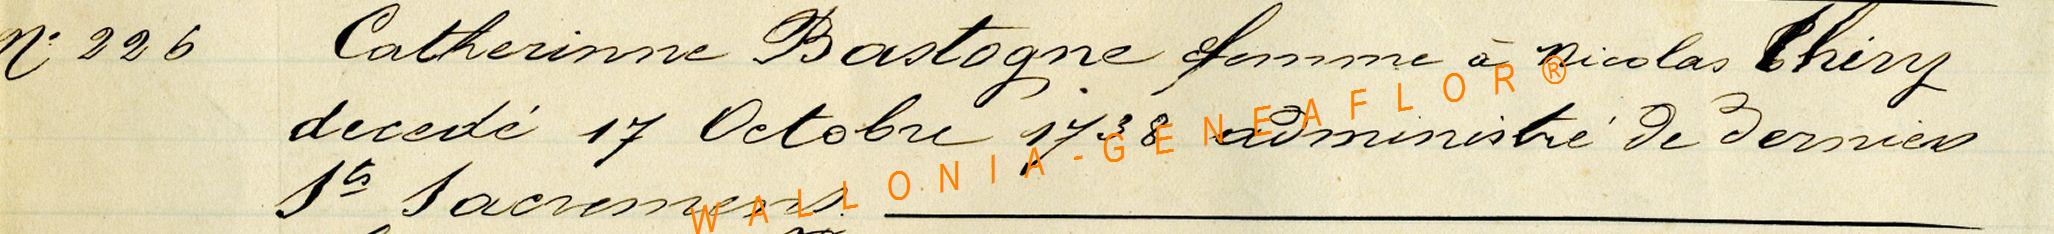 N° 226 Catherinne Bastogne femme à Nicolas Thiry
decedé 17 Octobre 1738 administré de dernier
Sts Sacremens
WALLONIA-GENEAFLOR®